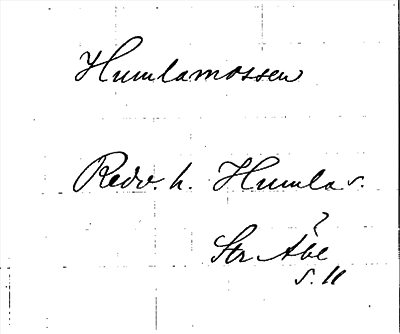 Humlamossen
Redv. h. Humla s.
?
Str Åbe
s. 11